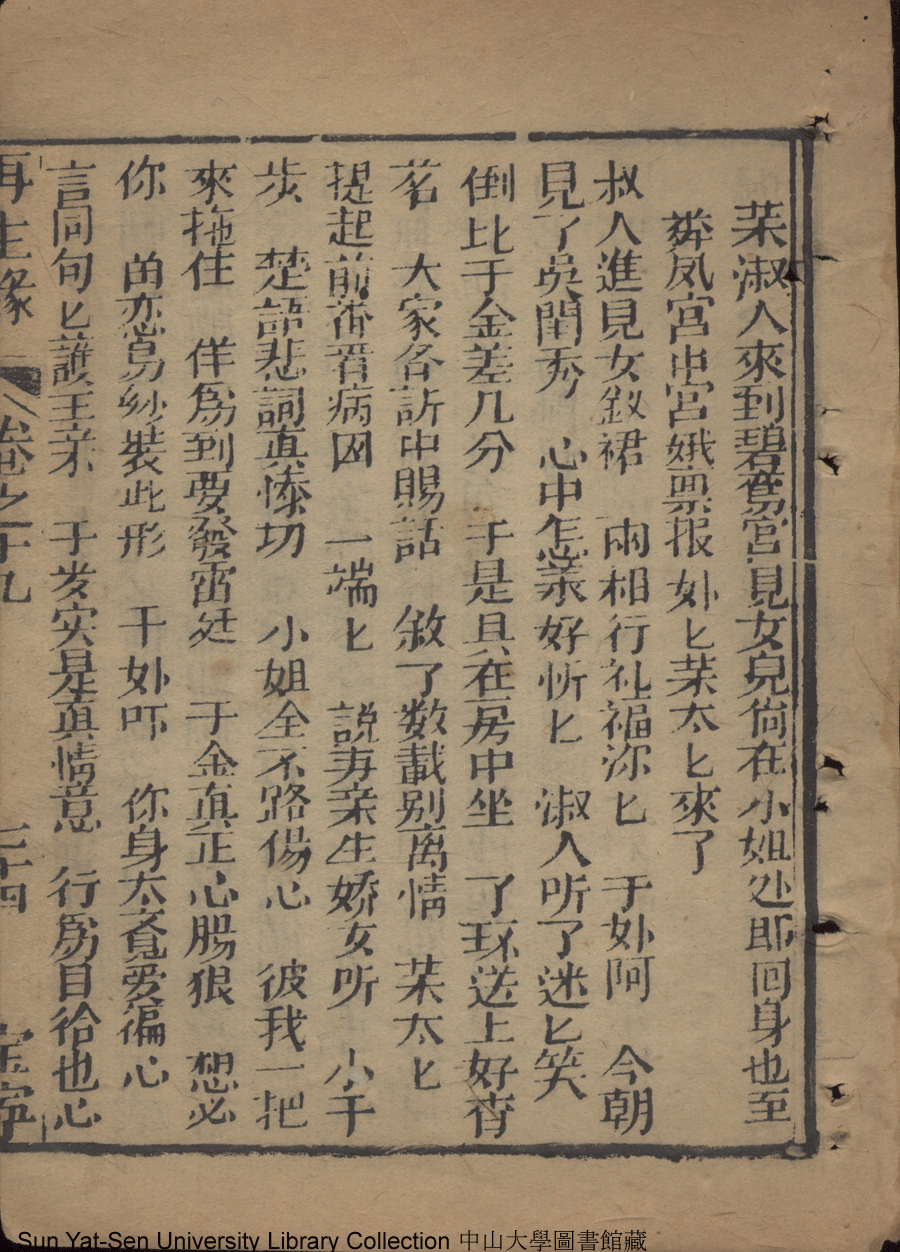 茉淑人來到碧鸞宮見女皃尙在小姐处即回身也至
奔凤宮中宮娥禀报 奶匕茉太匕來了
叔人進見女釵裙 兩相行礼福深匕 于奶阿 今朝
見了吳閨秀 心中怎業好忻匕 淑人听了迷匕笑
倒比于金差几分 于是具在房中坐 了环送上好杳
茗 大家各訢中賜話 敘了数載别离情 茉太匕
提起前番着病因 一端匕 説弄亲生娇女听 小干
步 楚語悲詞真悽切 小姐全不路傷心 彼我一把
來拖住 佯爲到要發雷廷 于金真正心腸狠 想必
你 苗恋易紗装此形 干奶吓 你身太覔爱徧心
言同句匕護王亲 于发实是真情意 行爲自徐也心
再生緣 卷之十九 三十四 宝寧
Sun Yat-Sen University Library Collection 中山大學圖書館藏